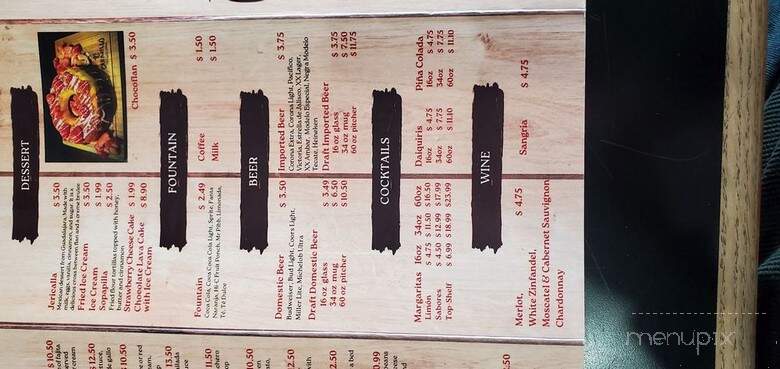 DESSERT
Jericalla $ 3.50
Mexican dessert from Guadalajara, Made with
milk, eggs, vanilla, cinnamon, and sugar. It is a
delicious cross between flan and a creme brulee
Fried Ice Cream $ 3.50
Ice Cream $ 1.99
Sopapilla $ 2.50
Fried flour tortillas topped with honey,
butter and cinnamon
Strawberry Cheese Cake $ 1.99
Chocolate Lava Cake $ 8.90
with Ice Cream
Chocoflan $ 3.50
FOUNTAIN
Fountain $ 2.49
Coca Cola, Coca Coca Cola Light, Sprite, Fanta
Naranja, Hi-C Fruit Ponch, Mr Pibb, Limonada,
Té, Té Dulce
Coffee $ 1.50
Milk $ 1.50
BEER
Domestic Beer $ 3.50
Budweiser, Bud Light, Coors Light
Miller Lite, Michelob Ultra
Draft Domestic Beer
16 oz glass $ 3.49
34 oz mug $ 6.50
60 oz pitcher $ 10.50
Imported Beer $ 3.75
Corona Extra, Corona Light, Pacifico,
Victoria, Estrella de Jalisco, XX Lager,
XX Ambar, Modelo Especial, Negra Modelo
Tecate, Heineken
Draft Imported Beer
16 oz glass $ 3.75
34 oz mug $ 7.50
60 oz pitcher $ 11.75
COCKTAILS
Margaritas 16oz 34oz 60oz
Limón $ 4.75 $ 11.50 $16.50
Sabores $ 4.50 $12.99 $17.99
Top-Shelf $ 6.99 $18.99 $23.99
Daiquiris
16oz $ 4.75
34oz $ 7.75
60oz $ 11.10
Piña Colada
16oz $ 4.75
34oz $ 7.75
60oz $ 11.10
WINE
Merlot, $ 4.75
White Zinfandel,
Moscatel & Cabernet Sauvignon
Chardonnay
Sangria $ 4.75
menupix